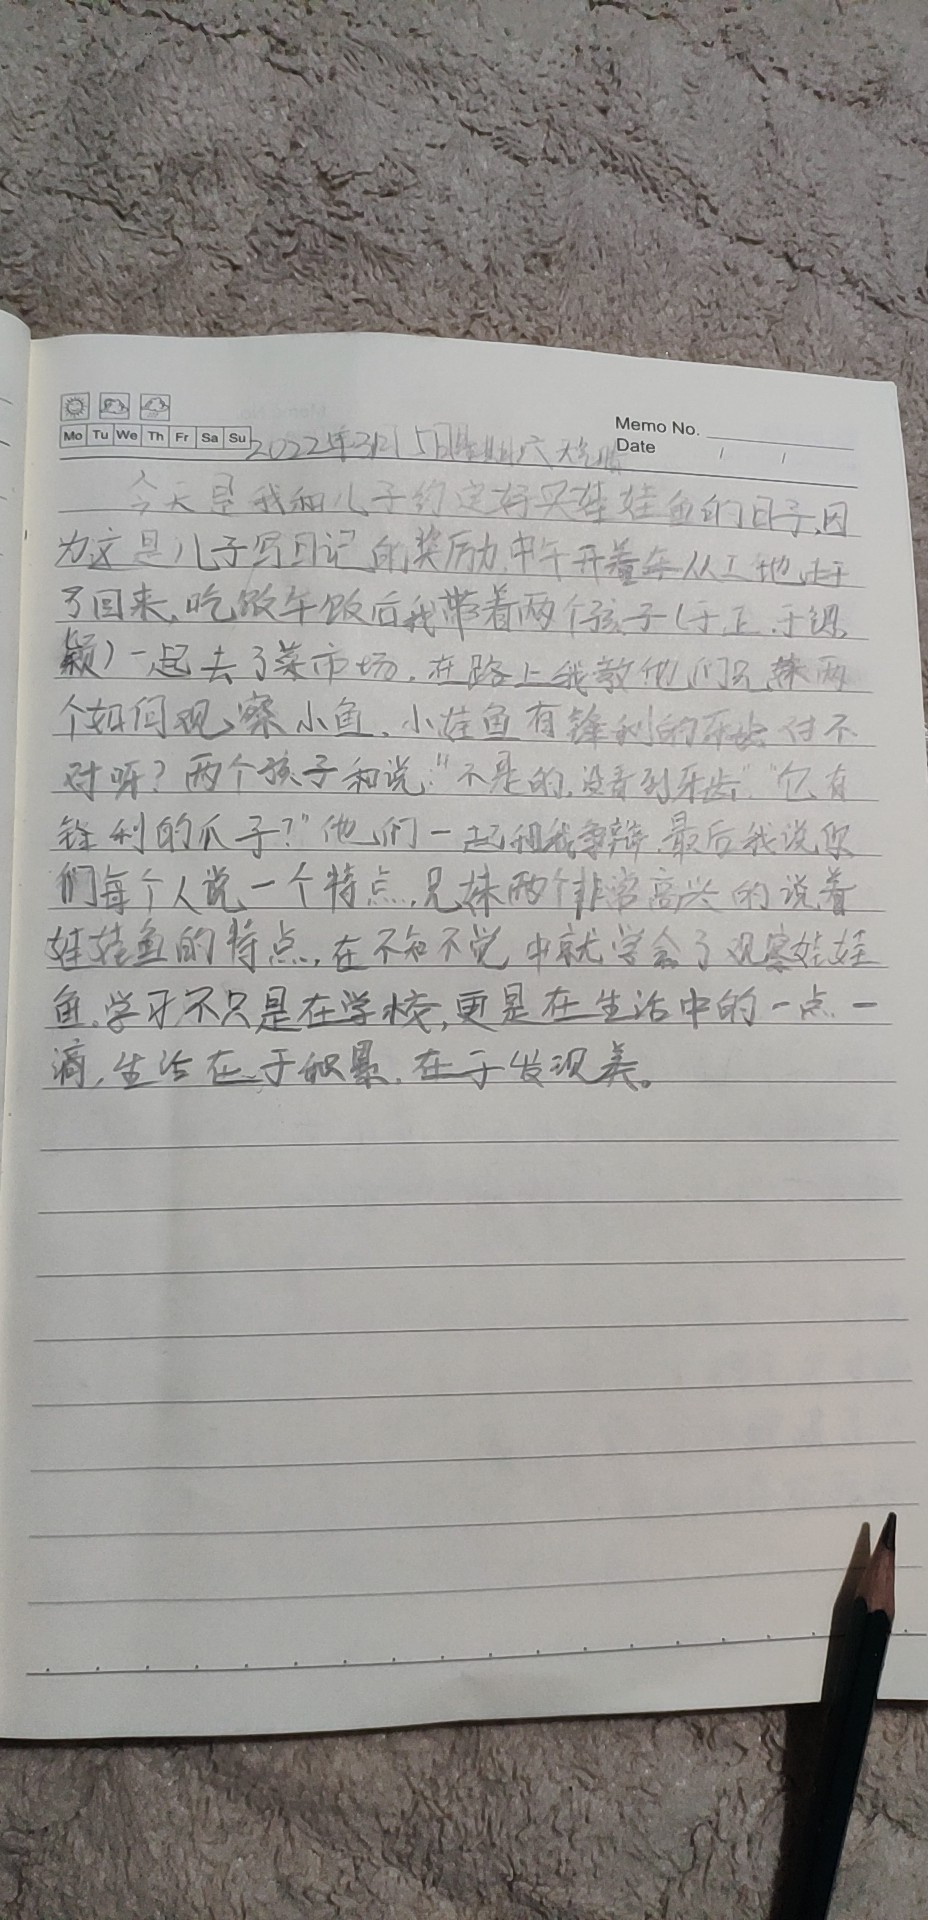 Memo No.
Mo Tu We Th Fr Sa Su
Date / /
2022年3月5日星期六 天气晴
今天是我和儿子约定好买娃娃鱼的日子,因
为这是儿子写日记的奖励,中午开着车从工地赶
了回来,吃饭午饭后我带着两个孩子(于正、于
颖)一起去了菜市场,在路上我教他们兄妹两
个如何观察小鱼,小娃鱼有锋利的牙齿对不
对呀?两个孩子和说:"不是的,没看到牙齿""它有
锋利的爪子?"他们一起和我争辩,最后我说你
们每个人说一个特点,兄妹两个非常高兴的说着
娃娃鱼的特点,在不知不觉中就学会了观察娃娃
鱼,学习不只是在学校,更是在生活中的一点一
滴,生活在于积累,在于发现美。